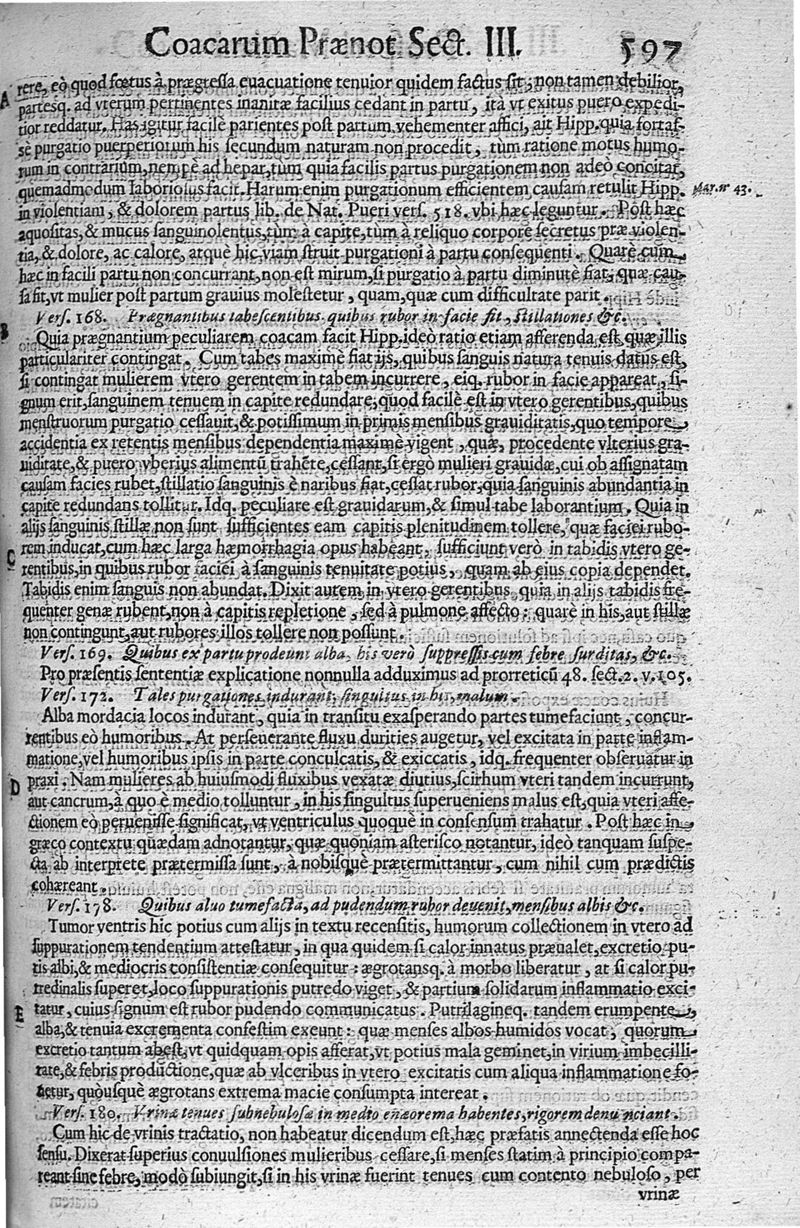 Coacarum Prænot. Sect. III. 597
rere, eò quod fœtus à prægressa euacuatione tenuior quidem factus sit; non tamen debilior,
A
partesq. ad vterum pertinentes inanitæ facilius cedant in partu, ità vt exitus puero expedi-
tior reddatur. Has igitur facilè parientes post partum vehementer affici, ait Hipp. quia fortas-
sè purgatio puerperiorum his secundum naturam non procedit, tùm ratione motus humo-
rum in contrarium, nempè ad hepar, tùm quia facilis partus purgationem non adeò concitat,
quemadmodum laboriosus facit. Harum enim purgationum efficientem causam retulit Hipp.
in violentiam, & dolorem partus lib. de Nat. Pueri vers. 518. vbi hæc leguntur. Post hæc
aquositas, & mucus sanguinolentus, tùm à capite, tùm à reliquo corpore secretus præ violen-
tia, & dolore, ac calore, atquè hic viam struit purgationi à partu consequenti. Quarè cum
hæc in facili partu non concurrant, non est mirum, si purgatio à partu diminutè fiat, quæ cau-
sa fit, vt mulier post partum grauius molestetur, quam, quæ cum difficultate parit.
Vers. 168. Prægnantibus tabescentibus quibus rubor in facie fit, stillationes &c.
B
Quia prægnantium peculiarem coacam facit Hipp. ideò ratio etiam afferenda est, quæ illis
particulariter contingat. Cum tabes maximè fiat ijs, quibus sanguis natura tenuis datus est,
si contingat mulierem vtero gerentem in tabem incurrere, eiq. rubor in facie appareat, si-
gnum erit, sanguinem tenuem in capite redundare, quod facilè est in vtero gerentibus, quibus
menstruorum purgatio cessauit, & potissimum in primis mensibus grauiditatis, quo tempore
accidentia ex retentis mensibus dependentia maximè vigent, quæ, procedente vlterius gra-
uiditate, & puero vberius alimentũ trahẽte, cessant, si ergò mulieri grauidæ, cui ob assignatam
causam facies rubet, stillatio sanguinis è naribus fiat, cessat rubor, quia sanguinis abundantia in
capite redundans tollitur. Idq. peculiare est grauidarum, & simul tabe laborantium. Quia in
alijs sanguinis stillæ non sunt sufficientes eam capitis plenitudinem tollere, quæ faciei rubo-
C
rem inducat, cum hæc larga hæmorrhagia opus habeant, sufficiunt verò in tabidis vtero ge-
rentibus, in quibus rubor faciei à sanguinis tenuitate potius, quam ab eius copia dependet.
Tabidis enim sanguis non abundat. Dixit autem in vtero gerentibus, quia in alijs tabidis fre-
quenter genæ rubent, non à capitis repletione, sed à pulmone affecto: quarè in his, aut stillæ
non contingunt, aut rubores illos tollere non possunt.
Vers. 169. Quibus ex partu prodeunt alba, his verò suppressis cum febre, surditas, &c.
Pro præsentis sententiæ explicatione nonnulla adduximus ad prorreticũ 48. sect. 2. v. 105.
Vers. 172. Tales purgationes indurant, singultus in his, malum.
Alba mordacia locos indurant, quia in transitu exasperando partes tumefaciunt, concur-
rentibus eò humoribus. At perseuerante fluxu durities augetur, vel excitata in parte inflam-
matione, vel humoribus ipsis in parte conculcatis, & exiccatis, idq. frequenter obseruatur in
D
praxi. Nam mulieres ab huiusmodi fluxibus vexatæ diutius, scirhum vteri tandem incurrunt,
aut cancrum, à quo è medio tolluntur, in his singultus superueniens malus est, quia vteri affe-
ctionem eò peruenisse significat, vt ventriculus quoquè in consensum trahatur. Post hæc in
græco contextu quædam adnotantur, quæ quoniam asterisco notantur, ideò tanquam suspe-
cta ab interprete prætermissa sunt, à nobisquè prætermittantur, cum nihil cum prædictis
cohæreant.
Vers. 178. Quibus aluo tumefacta, ad pudendum rubor deuenit, mensibus albis &c.
Tumor ventris hic potius cum alijs in textu recensitis, humorum collectionem in vtero ad
suppurationem tendentium attestatur, in qua quidem si calor innatus præualet, excretio pu-
ris albi, & mediocris consistentiæ consequitur: ægrotansq. à morbo liberatur, at si calor pu-
tredinalis superet, loco suppurationis putredo viget, & partium solidarum inflammatio exci-
E
tatur, cuius signum est rubor pudendo communicatus. Putrilagineq. tandem erumpente
alba, & tenuia excrementa confestim exeunt: quæ menses albos humidos vocat, quorum
excretio tantum abest, vt quidquam opis afferat, vt potius mala geminet, in virium imbecilli-
tate, & febris productione, quæ ab vlceribus in vtero excitatis cum aliqua inflammatione fo-
uetur, quousquè ægrotans extrema macie consumpta intereat.
Vers. 180. Vrinæ tenues subnebulosæ in medio enæorema habentes, rigorem denunciant.
Cum hic de vrinis tractatio, non habeatur dicendum est, hæc præfatis annectenda esse hoc
sensu. Dixerat superius conuulsiones mulieribus cessare, si menses statim à principio compa-
reant sine febre, modò subiungit, si in his vrinæ fuerint tenues cum contento nebuloso, per
vrinæ